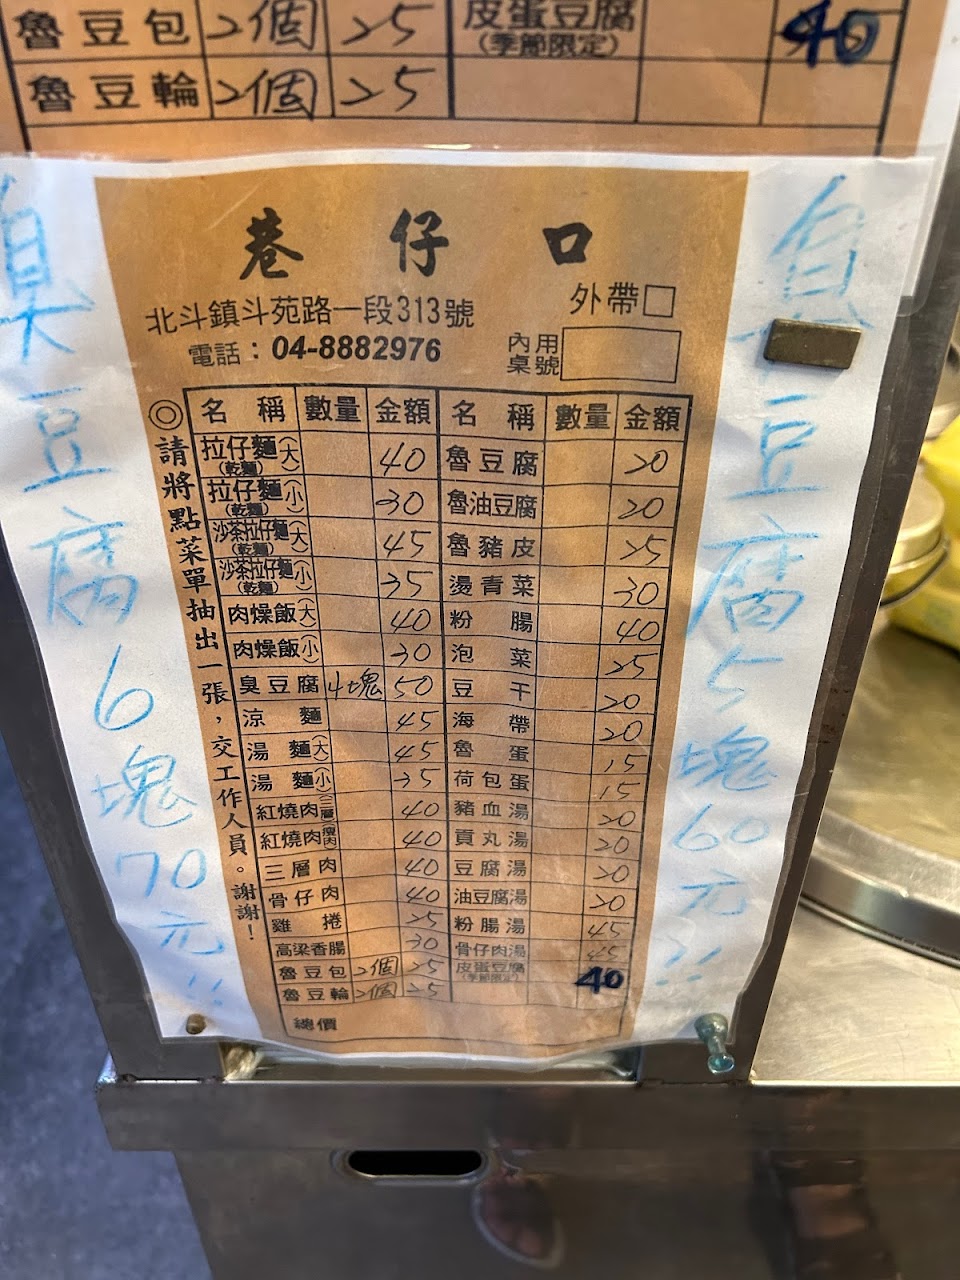 魯豆包 2個 25 皮蛋豆腐(季節限定) 40
魯豆輪 2個 25
巷仔口
北斗鎮斗苑路一段313號
外帶□
電話：04-8882976
內用桌號
◎請將點菜單抽出一張，交工作人員。謝謝！
名稱 數量 金額 名稱 數量 金額
拉仔麵(大)(乾麵) 40 魯豆腐 20
拉仔麵(小)(乾麵) 30 魯油豆腐 20
沙茶拉仔麵(大)(乾麵) 45 魯豬皮 25
沙茶拉仔麵(小)(乾麵) 35 燙青菜 30
肉燥飯(大) 40 粉腸 40
肉燥飯(小) 30 泡菜 25
臭豆腐 4塊 50 豆干 20
涼麵 45 海帶 20
湯麵(大) 45 魯蛋 15
湯麵(小) 35 荷包蛋 15
紅燒肉(三層) 40 豬血湯 20
紅燒肉(瘦肉) 40 貢丸湯 20
三層肉 40 豆腐湯 20
骨仔肉 40 油豆腐湯 20
雞捲 25 粉腸湯 45
高梁香腸 30 骨仔肉湯 45
魯豆包 2個 25 皮蛋豆腐(季節限定) 40
魯豆輪 2個 25
總價
臭豆腐6塊70元!!
臭豆腐5塊60元!!